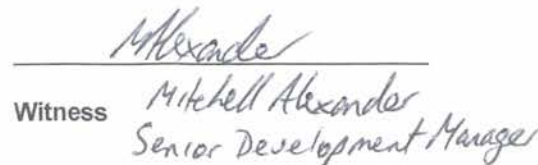 MAlexander
Witness Mitchell Alexander
Senior Development Manager